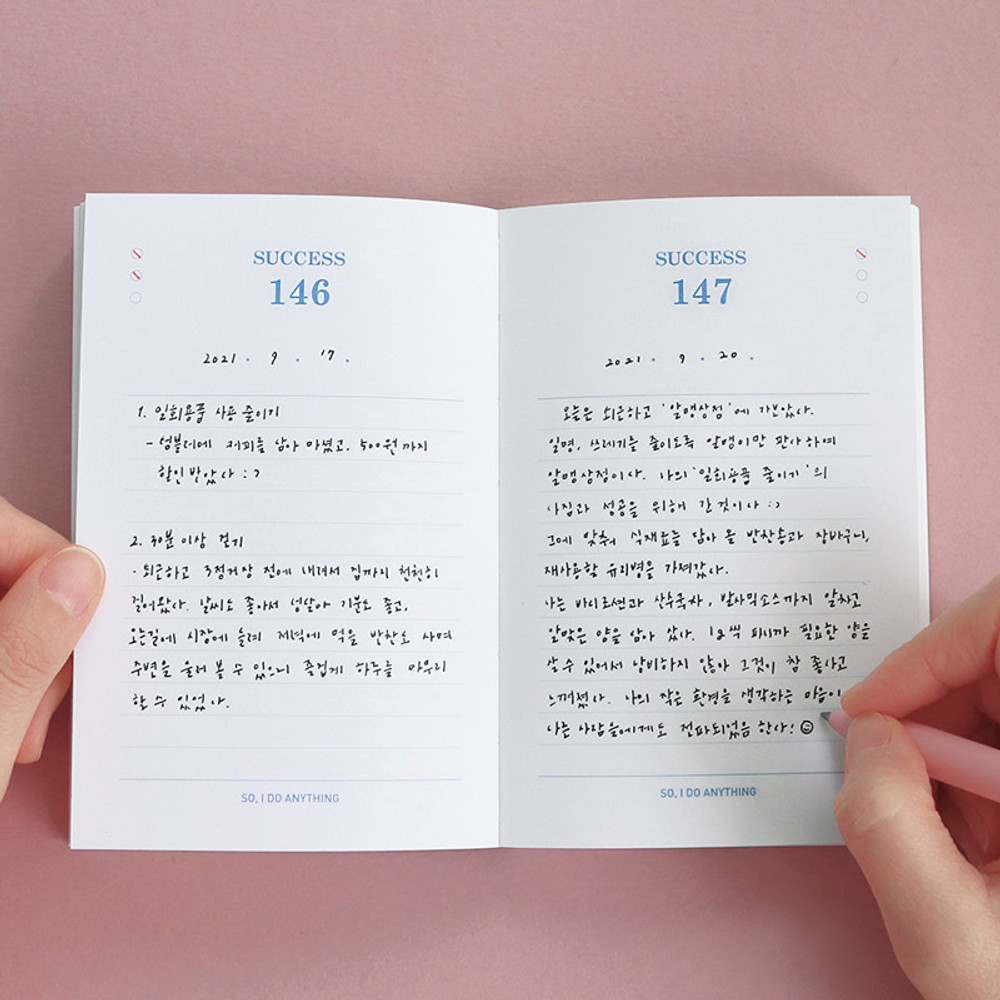 SUCCESS
146
2021 · 9 · 17 ·
1. 일회용품 사용 줄이기
- 텀블러에 커피를 담아 마셨고, 500원까지
할인받았다 :)
2. 30분 이상 걷기
- 퇴근하고 3정거장 전에 내려서 집까지 천천히
걸어왔다. 날씨도 좋아서 걸을 기분도 좋고,
오는길에 시장에 들려 저녁에 먹을 반찬도 사며
주변을 둘러 볼 수 있으니 즐겁게 하루를 마무리
할 수 있었다.
SO, I DO ANYTHING
SUCCESS
147
2021 · 9 · 20 ·
오늘은 퇴근하고 '알맹상점'에 가보았다.
일명, 쓰레기를 줄이도록 알맹이만 판다하여
알맹상점이다. 나의 '일회용품 줄이기'의
다짐과 성공을 위해 간 것이다 :)
그에 맞춰 식재료를 담아 올 반찬통과 장바구니,
재사용할 유리병을 가져갔다.
나는 바디로션과 산추국차, 발사믹소스까지 알차고
알맞은 양을 담아 샀다. 1g씩 파니까 필요한 양을
살 수 있어서 낭비하지 않아 그것이 참 좋다고
느껴졌다. 나의 작은 환경을 생각하는 마음이
다른 사람들에게도 전파되었음 한다!
SO, I DO ANYTHING